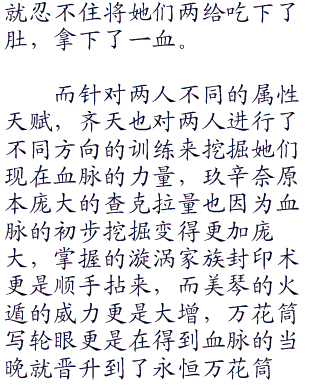 就忍不住将她们两给吃下了
肚，拿下了一血。
而针对两人不同的属性
天赋，齐天也对两人进行了
不同方向的训练来挖掘她们
现在血脉的力量，玖辛奈原
本庞大的查克拉量也因为血
脉的初步挖掘变得更加庞
大，掌握的漩涡家族封印术
更是顺手拈来，而美琴的火
遁的威力更是大增，万花筒
写轮眼更是在得到血脉的当
晚就晋升到了永恒万花筒